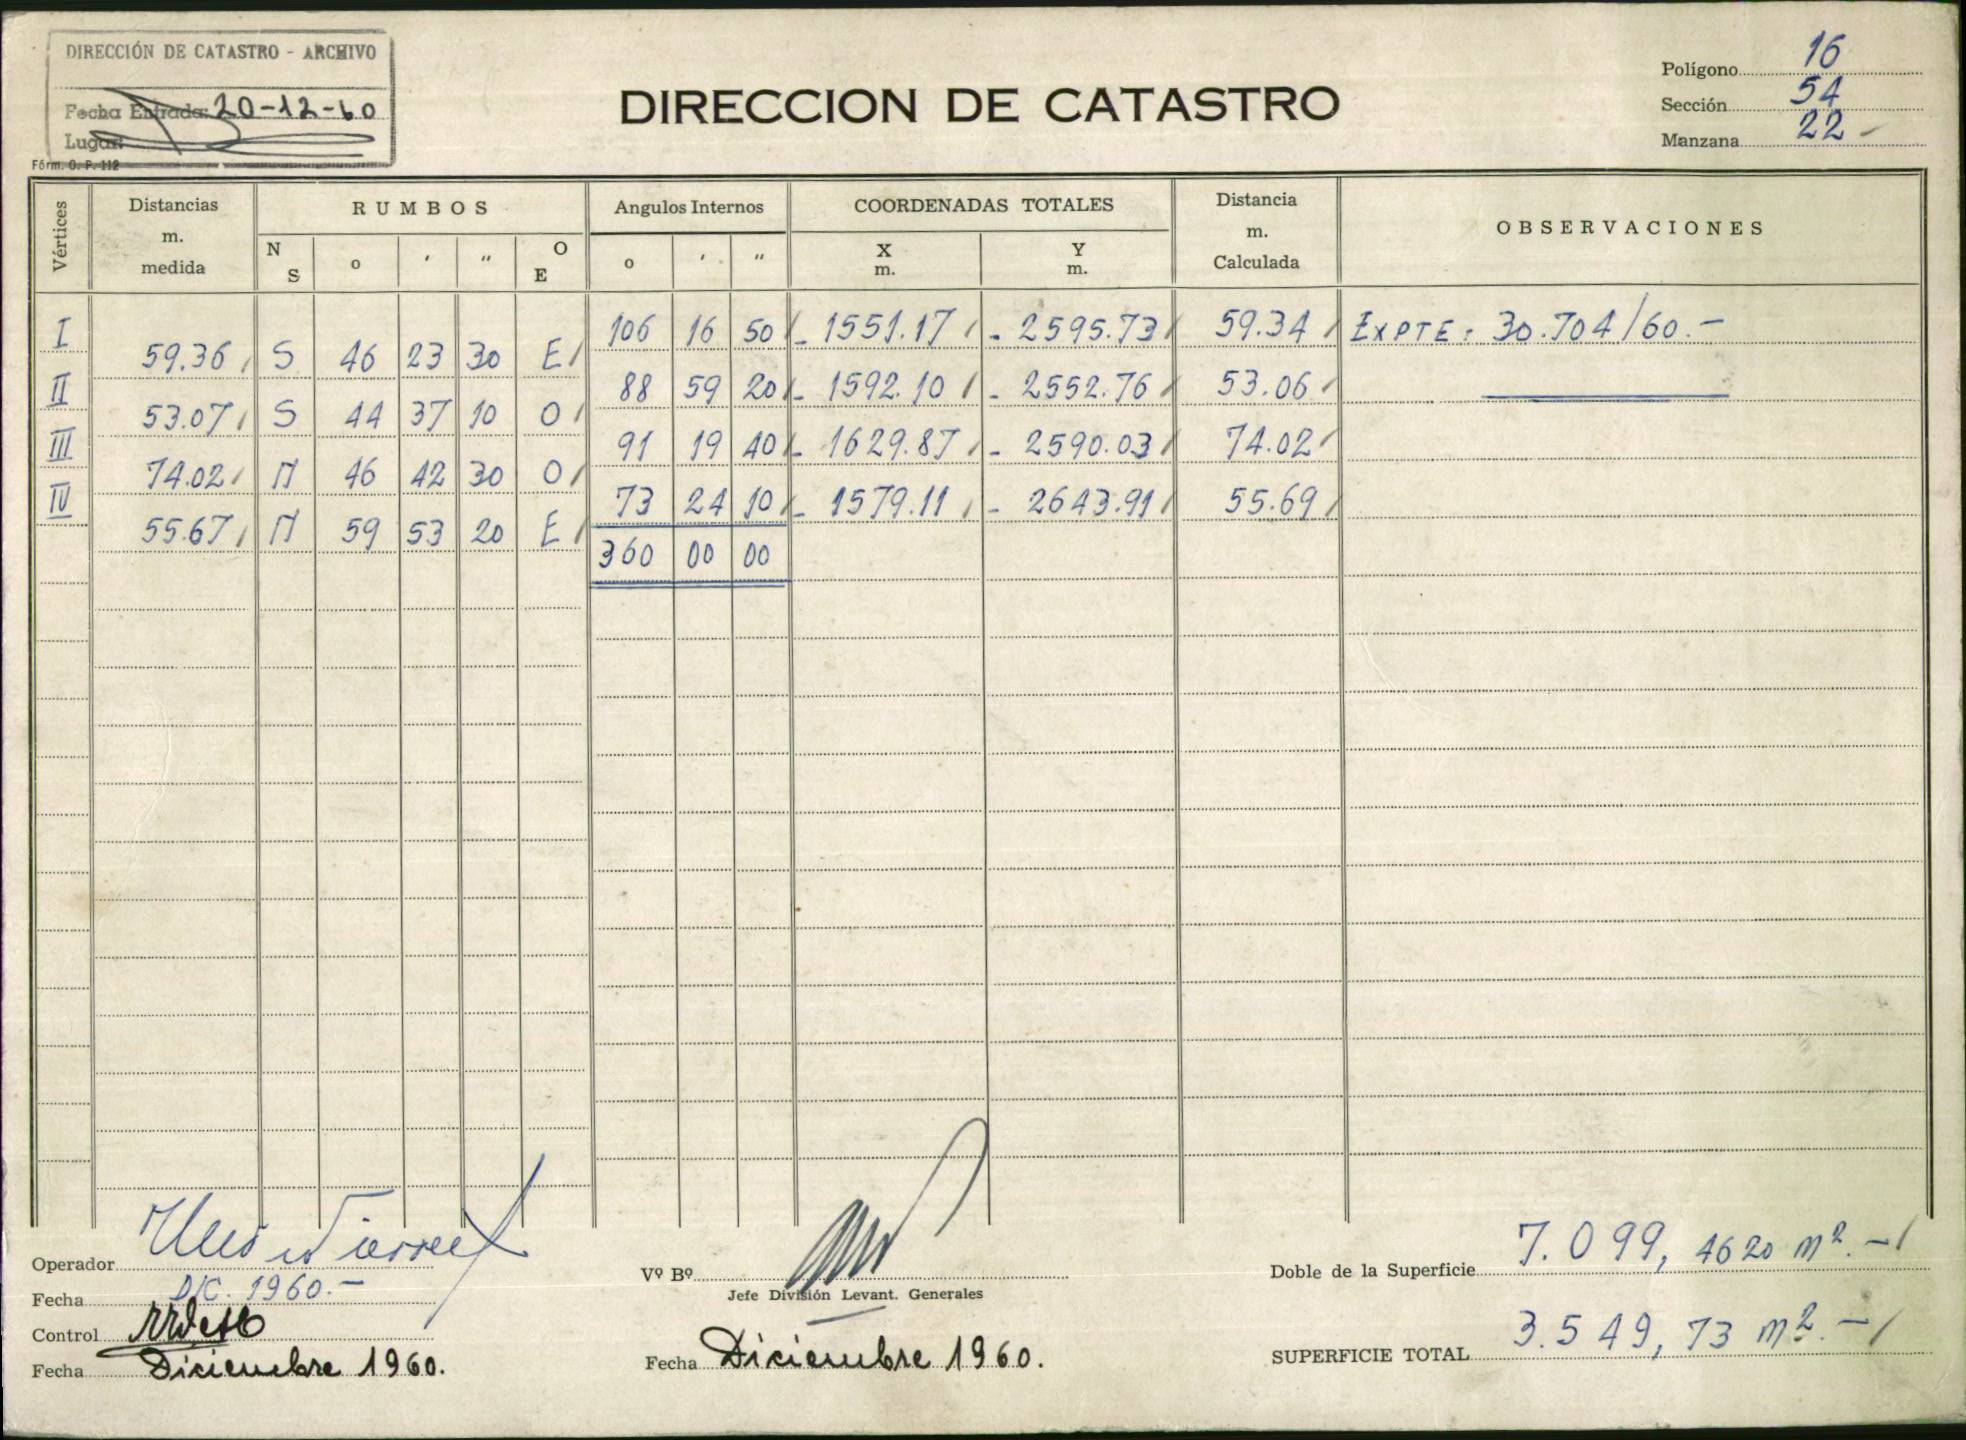 DIRECCIÓN DE CATASTRO - ARCHIVO
Fecha Entrada: 20-12-60
Lugar:
Fórm. O. P. 112
DIRECCION DE CATASTRO
Polígono 16
Sección 54
Manzana 22 -
Vértices Distancias m. medida RUMBOS Angulos Internos COORDENADAS TOTALES Distancia m. Calculada OBSERVACIONES
N S o ' " O E o ' " X m. Y m.
I 106 16 50 - 1551.17 - 2595.73 59.34 EXPTE: 30.704/60.-
59.36 S 46 23 30 E
II 88 59 20 - 1592.10 - 2552.76 53.06
53.07 S 44 37 10 O
III 91 19 40 - 1629.87 - 2590.03 74.02
74.02 N 46 42 30 O
IV 73 24 10 - 1579.11 - 2643.91 55.69
55.67 N 59 53 20 E
360 00 00
Operador
Fecha DIC. 1960.-
Control
Fecha Diciembre 1960.
Vº Bº
Jefe División Levant. Generales
Fecha Diciembre 1960.
Doble de la Superficie 7.099,4620 m². -
SUPERFICIE TOTAL 3.549,73 m². -